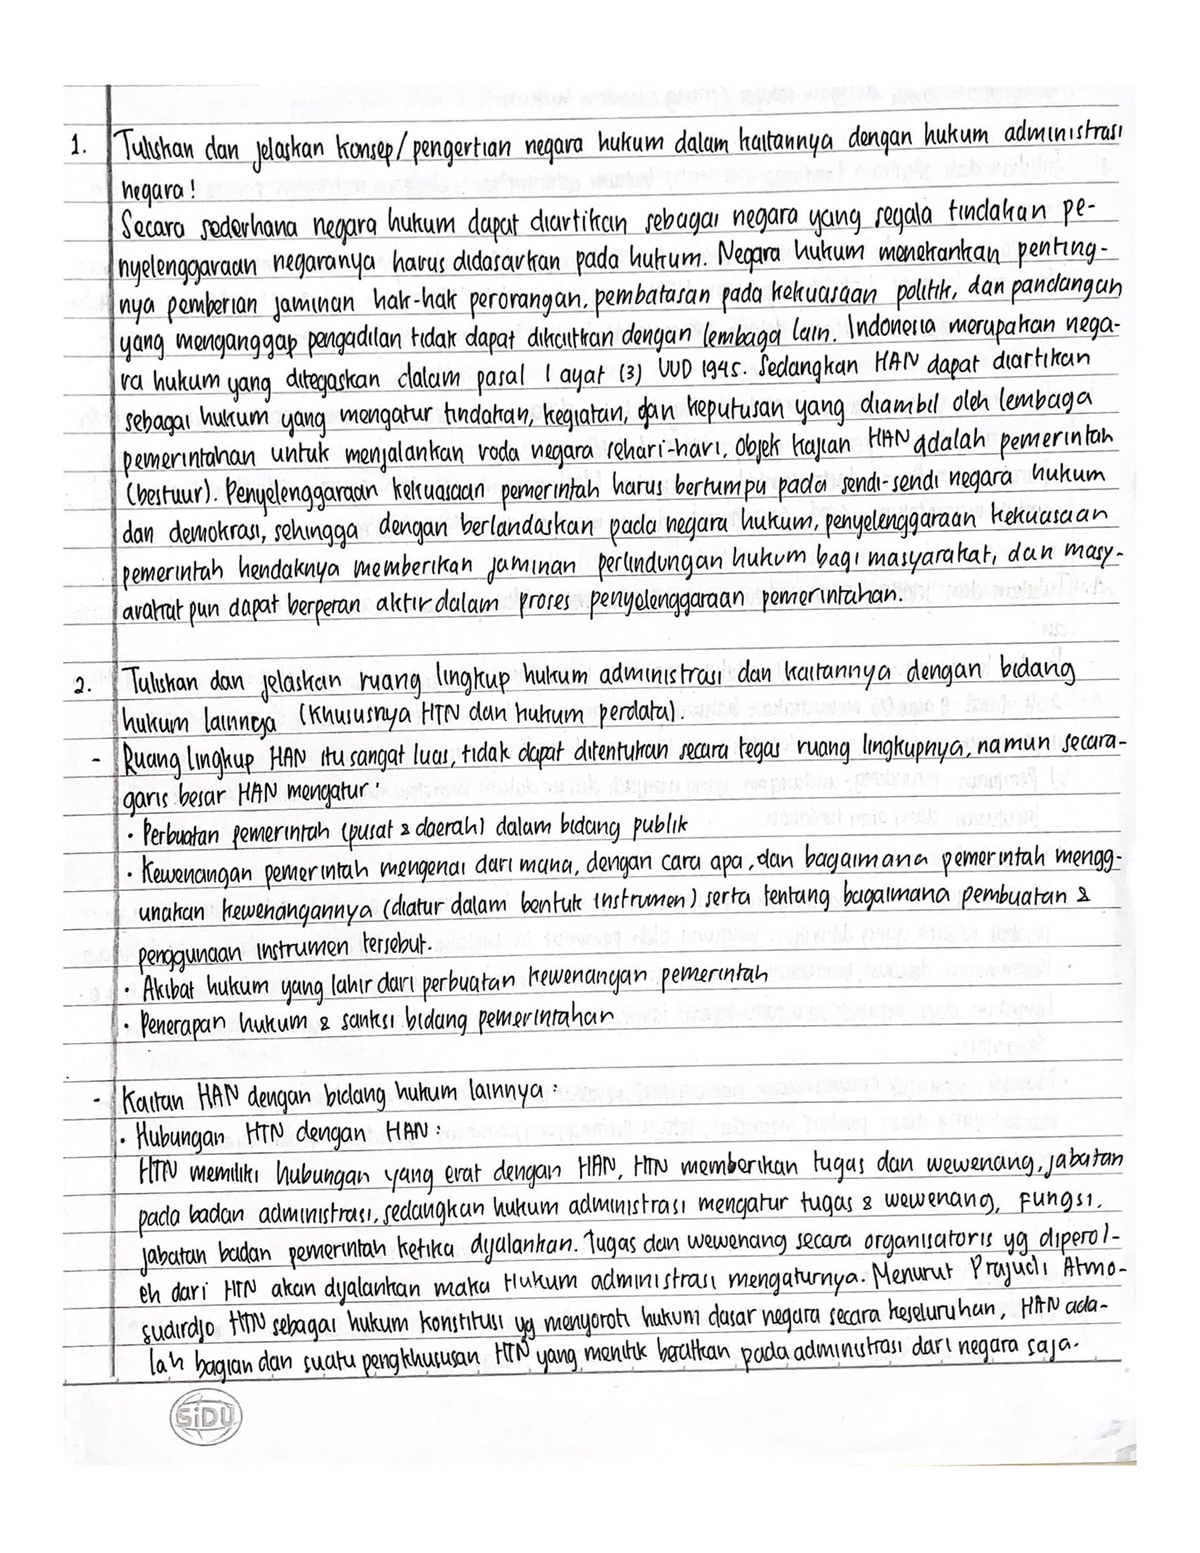 1. Tuliskan dan jelaskan konsep/pengertian negara hukum dalam kaitannya dengan hukum administrasi
negara!
Secara sederhana negara hukum dapat diartikan sebagai negara yang segala tindakan pe-
nyelenggaraan negaranya harus didasarkan pada hukum. Negara hukum menekankan penting-
nya pemberian jaminan hak-hak perorangan, pembatasan pada kekuasaan politik, dan pandangan
yang menganggap pengadilan tidak dapat dikaitkan dengan lembaga lain. Indonesia merupakan nega-
ra hukum yang ditegaskan dalam pasal 1 ayat (3) UUD 1945. Sedangkan HAN dapat diartikan
sebagai hukum yang mengatur tindakan, kegiatan, dan keputusan yang diambil oleh lembaga
pemerintahan untuk menjalankan roda negara sehari-hari, Objek kajian HAN adalah pemerintah
(bestuur). Penyelenggaraan kekuasaan pemerintah harus bertumpu pada sendi-sendi negara hukum
dan demokrasi, sehingga dengan berlandaskan pada negara hukum, penyelenggaraan kekuasaan
pemerintah hendaknya memberikan jaminan perlindungan hukum bagi masyarakat, dan masy-
arakat pun dapat berperan aktif dalam proses penyelenggaraan pemerintahan.
2. Tuliskan dan jelaskan ruang lingkup hukum administrasi dan kaitannya dengan bidang
hukum lainnya (khususnya HTN dan hukum perdata).
- Ruang lingkup HAN itu sangat luas, tidak dapat ditentukan secara tegas ruang lingkupnya, namun secara-
garis besar HAN mengatur:
• Perbuatan pemerintah (pusat & daerah) dalam bidang publik
• Kewenangan pemerintah mengenai dari mana, dengan cara apa, dan bagaimana pemerintah mengg-
unakan kewenangannya (diatur dalam bentuk instrumen) serta tentang bagaimana pembuatan &
penggunaan instrumen tersebut.
• Akibat hukum yang lahir dari perbuatan kewenangan pemerintah
• Penerapan hukum & sanksi bidang pemerintahan
- Kaitan HAN dengan bidang hukum lainnya:
• Hubungan HTN dengan HAN:
HTN memiliki hubungan yang erat dengan HAN, HTN memberikan tugas dan wewenang, jabatan
pada badan administrasi, sedangkan hukum administrasi mengatur tugas & wewenang, fungsi,
jabatan badan pemerintah ketika dijalankan. Tugas dan wewenang secara organisatoris yg diperol-
eh dari HTN akan dijalankan maka Hukum administrasi mengaturnya. Menurut Prajudi Atmo-
sudirdjo HTN sebagai hukum konstitusi yg menyoroti hukum dasar negara secara keseluruhan, HAN ada-
lah bagian dan suatu pengkhususan HTN yang menitik beratkan pada administrasi dari negara saja.
SiDU